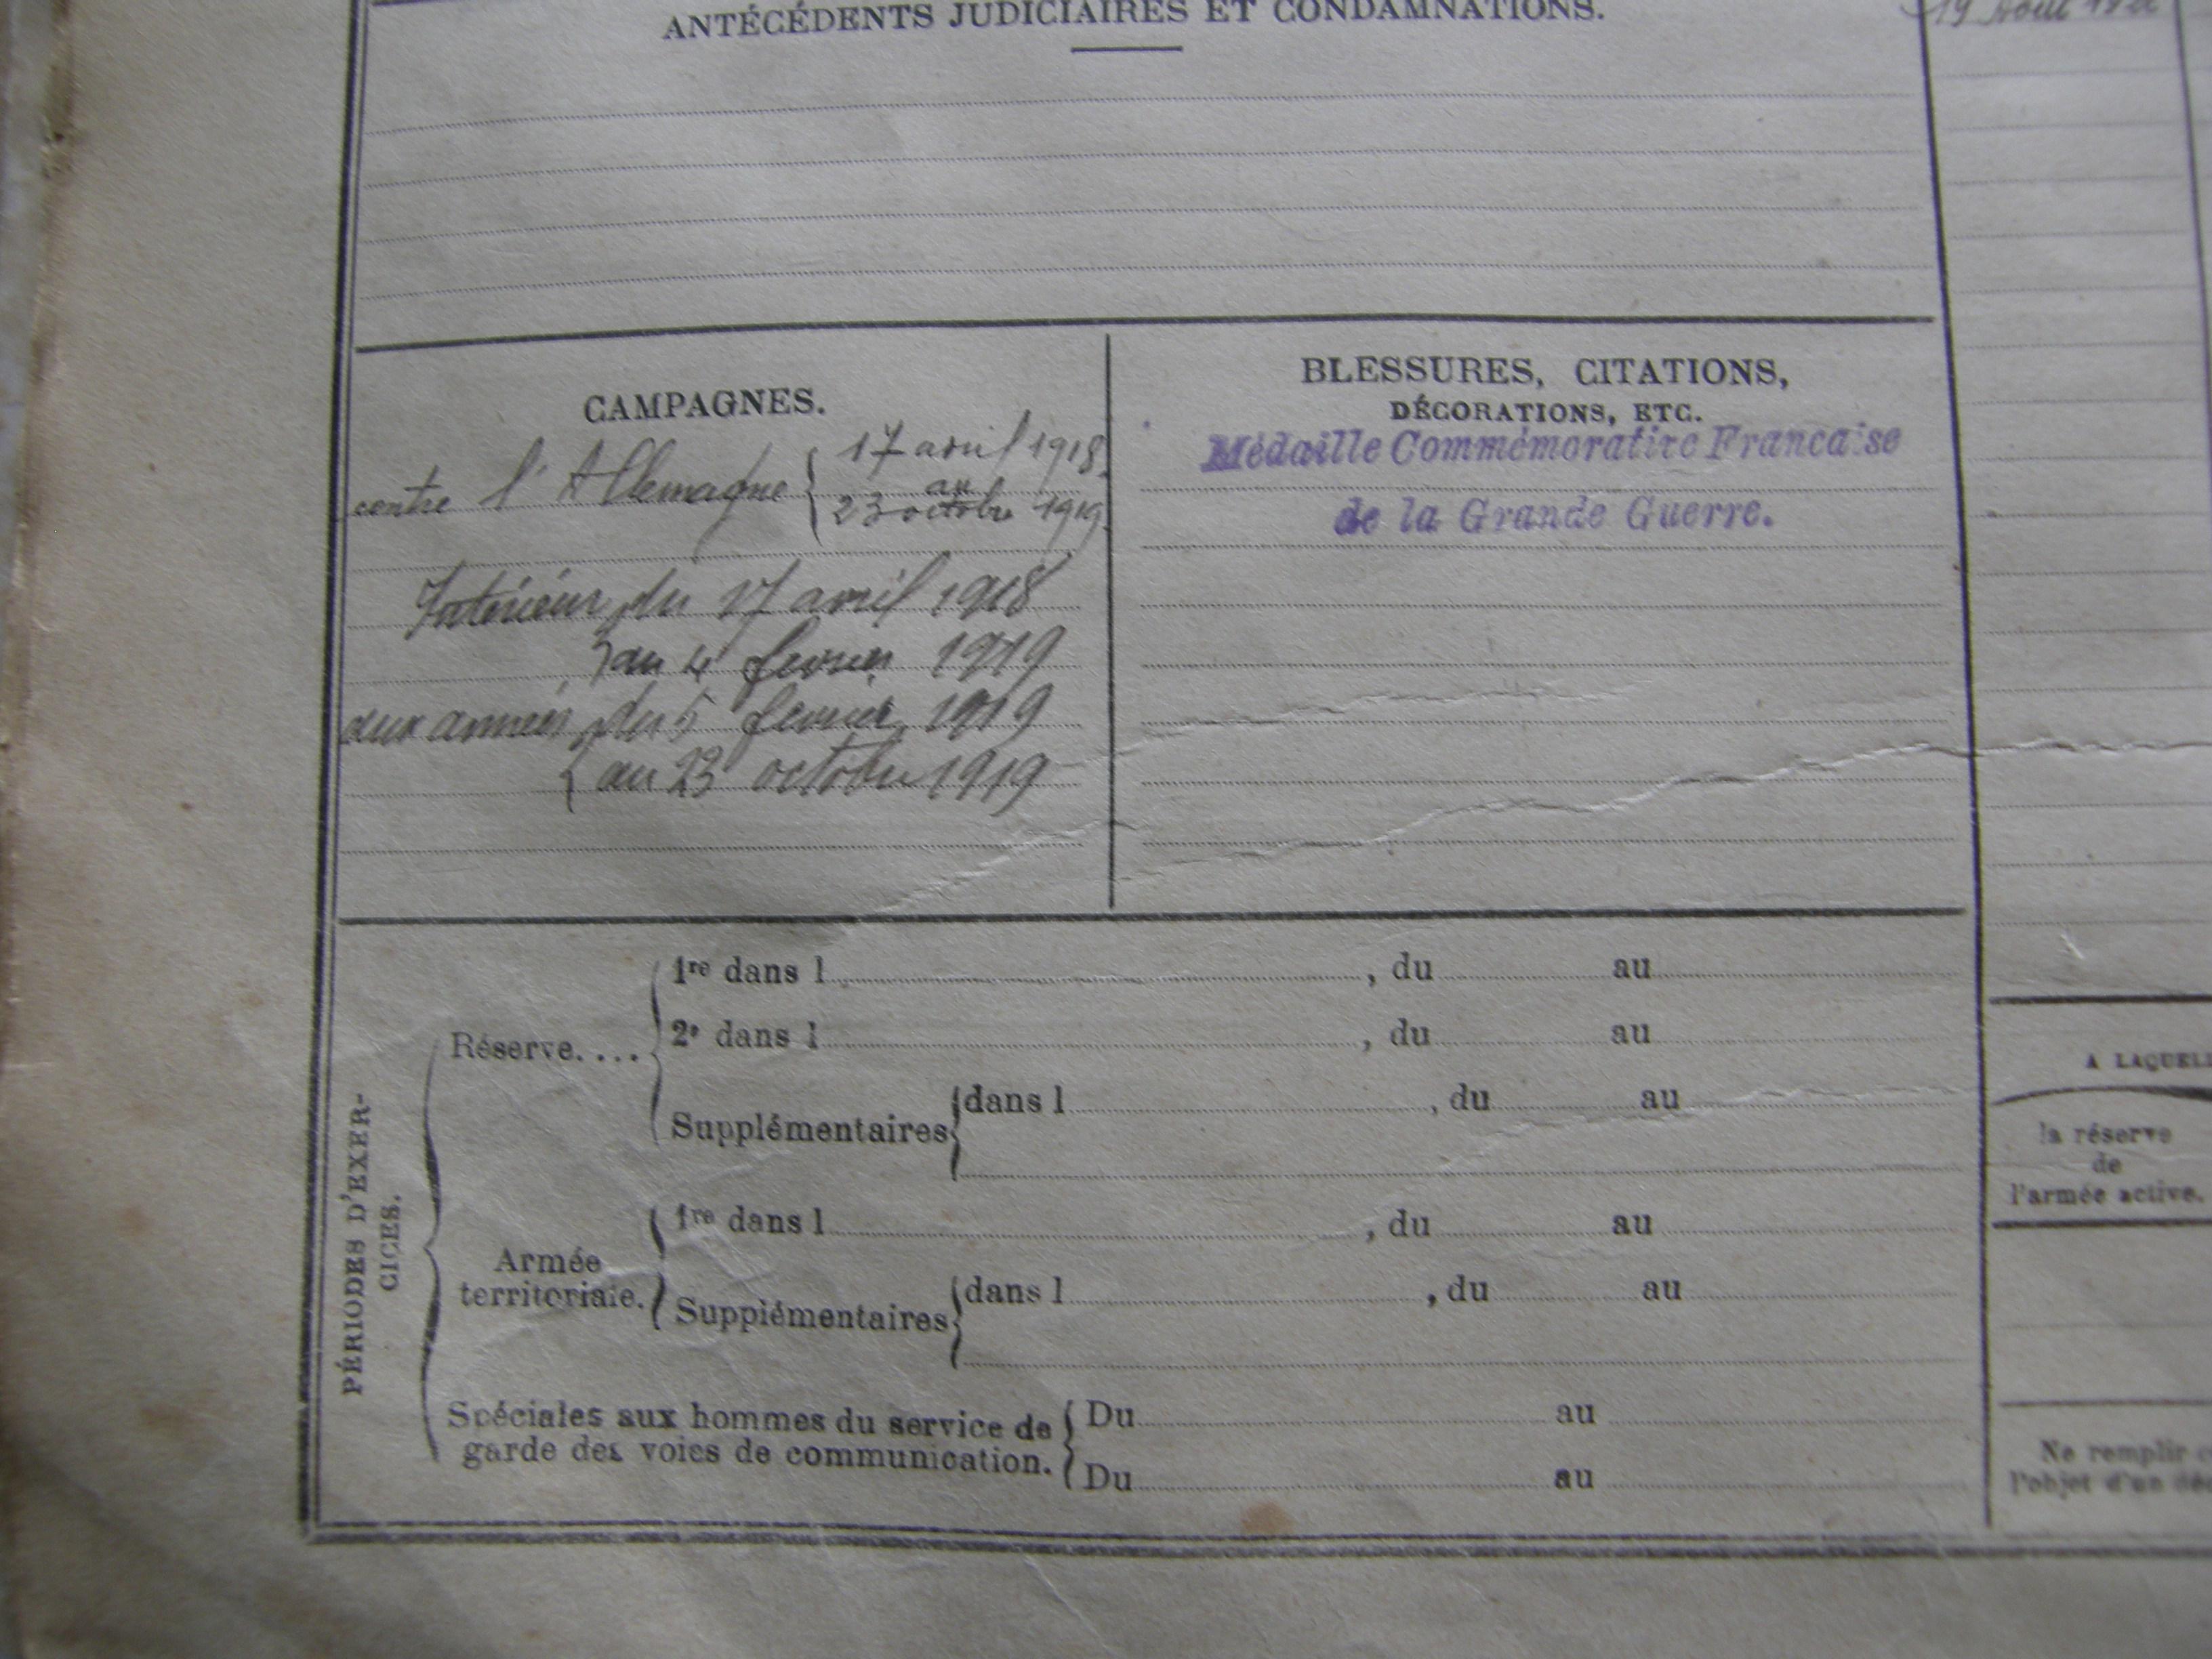 ANTÉCÉDENTS JUDICIAIRES ET CONDAMNATIONS.
19 Août
CAMPAGNES.
contre l'Allemagne { 17 avril 1918
au
23 octobre 1919
Intérieur du 17 avril 1918
au 4 fevrier 1919
aux armées du 5 fevrier 1919
{ au 23 octobre 1919
BLESSURES, CITATIONS,
DÉCORATIONS, ETC.
Médaille Commémorative Francaise
de la Grande Guerre.
PÉRIODES D'EXER-
CICES.
Réserve....
1re dans l , du au
2e dans l , du au
Supplémentaires { dans l , du au
Armée
territoriale.
1re dans l , du au
Supplémentaires { dans l , du au
Spéciales aux hommes du service de
garde des voies de communication.
Du au
Du au
A LAQUELL
la réserve
de
l'armée active.
Ne remplir
l'objet d'un